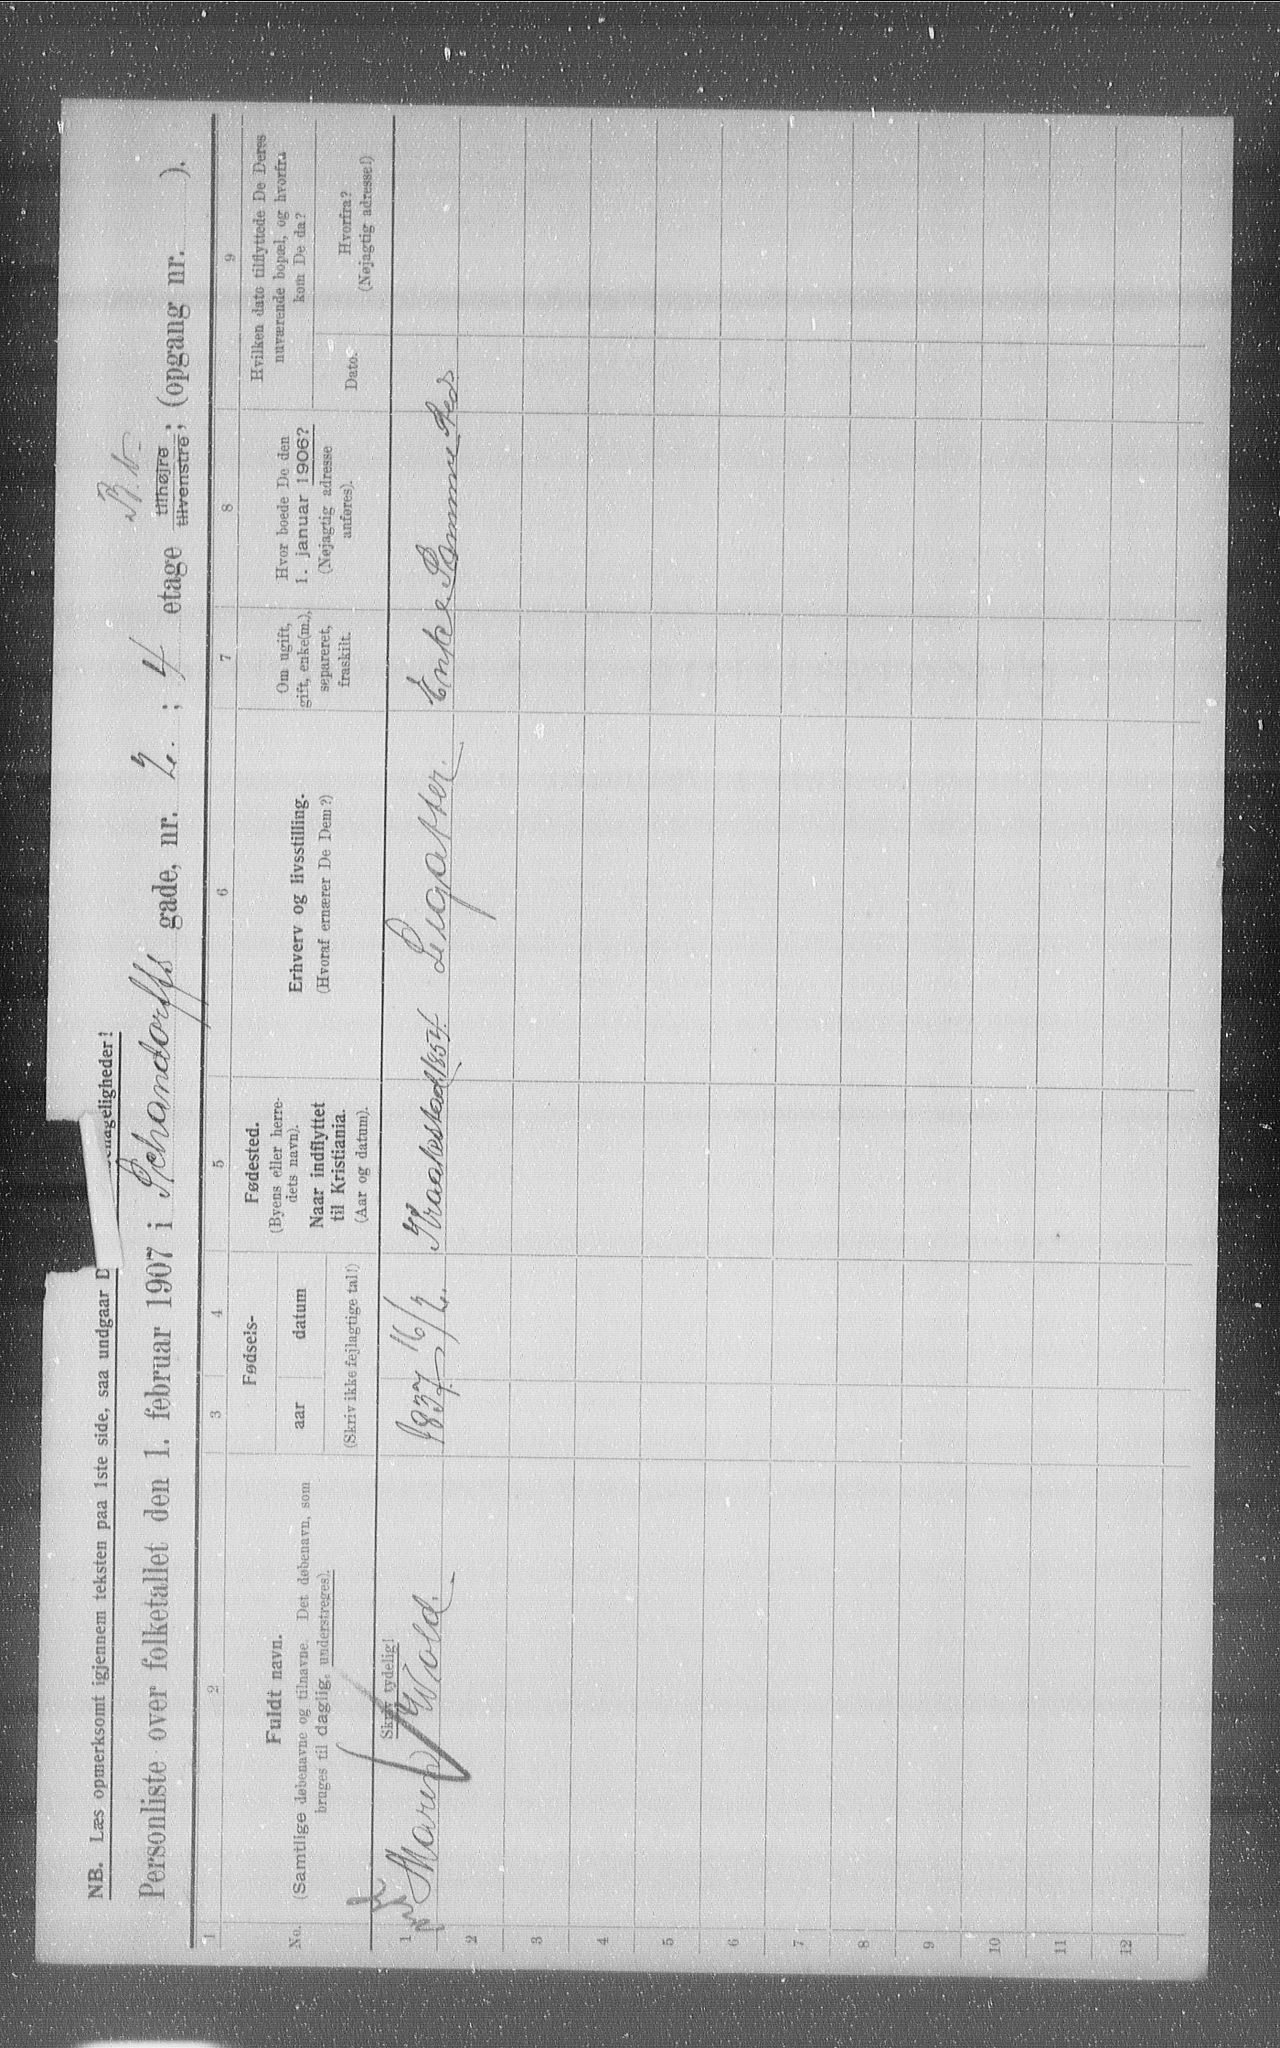 NB. Læs opmerksomt igjennem teksten paa 1ste side, saa undgaar D
Personliste over folketallet den 1. februar 1907 i Schandorffs gade, nr. 2. ; 4 etage tilhøjre tilvenstre, (opgang nr. ).
1 2 3 4 5 6 7 8 9
No.
Fuldt navn.
(Samtlige døbenavne og tilnavne. Det døbenavn, som
bruges til daglig, understreges).
Skriv tydelig!
Fødsels-
aar datum
(Skriv ikke fejlagtige tal!)
Fødested.
(Byens eller herre-
dets navn).
Naar indflyttet
til Kristiania.
(Aar og datum).
Erhverv og livsstilling.
(Hvoraf ernærer De Dem?)
Om ugift,
gift, enke(m.),
separeret,
fraskilt.
Hvor boede De den
1. januar 1906?
(Nøjagtig adresse
anføres).
Hvilken dato tilflyttede De Deres
nuværende bopæl, og hvorfra
kom De da?
Dato.
Hvorfra?
(Nøjagtig adresse!)
1 Maren Wold. 1837 16/2. Kraakestad 1854. Enke Samme Sted
2
3
4
5
6
7
8
9
10
11
12